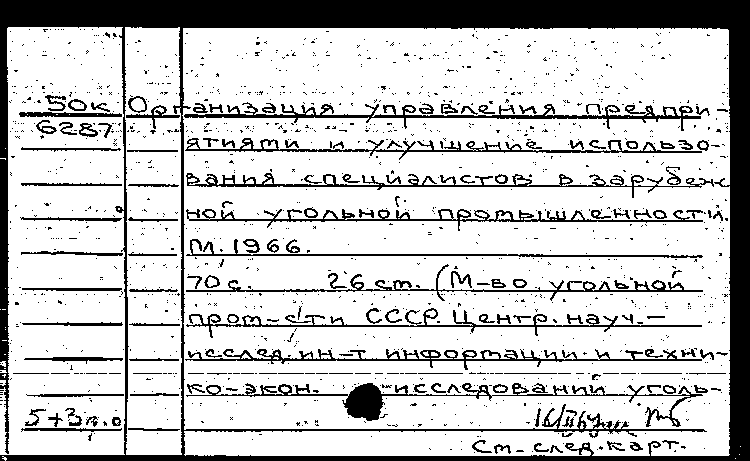 50к Организация управления предпри-
6287 ятиями и улучшение использо-
вания специалистов в зарубеж
ной угольной промышленности.
М. 1966.
70 с. 26 cm. (М-во угольной
пром-сти СССР. Центр. науч.-
исслед. ин-т информации и техни-
ко-экон. исследований уголь-
5+3п.о
См. след. карт.